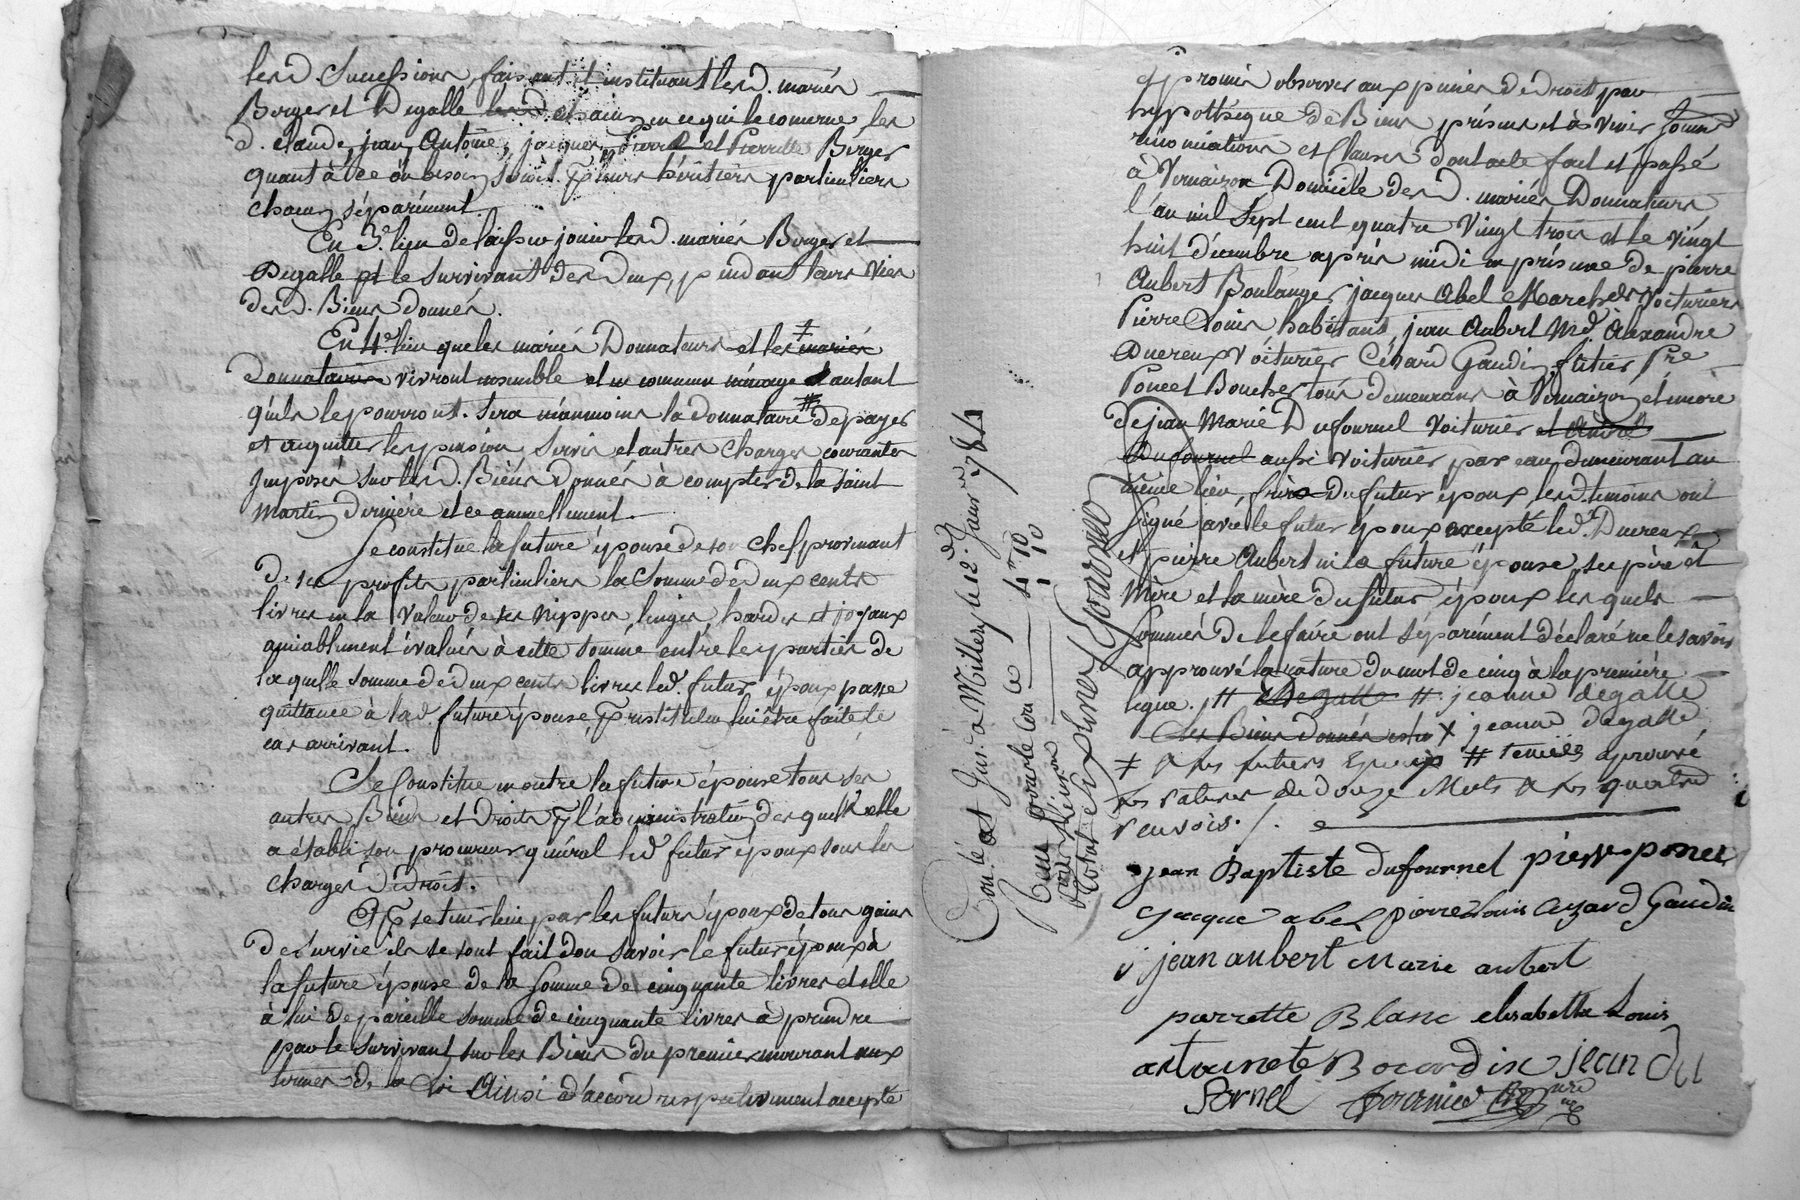 lesd. Successions, faisant et instituant lesd. mariés
Berger et Degalle lesd. chacun en ce qui le concerne les
d. claude, jean, Antoine, jacques, Pierre et Pierrette Berger
quant à ce ou besoin seroit leurs héritiers particuliers
chacun séparément.
En 3e. lieu delaisser jouir lesd. mariés Berger et
Degalle et le survivant des deux, pendant leurs vies
desd. Biens donnés.
En 4e. lieu que les mariés Donnateurs et les mariés
Donnataires vivront ensemble et en commun ménage autant
qu'ils le pourront. Sera néanmoins la donnataire # de payer
et acquitter les pension, servis et autres charges courantes
Imposés sur lesd. Biens donnés à compter de la saint
Martin dernière et ce annuellement.
Se constitue la future épouse de son chef provenant
de ses profits particuliers la somme de deux cents
livres en la valeur de ses nippes, linges, hardes et joyaux
amiablement évalués à cette somme entre les parties de
laquelle somme de deux cents livres led. futur époux passe
quittance à lad. future épouse, restitution lui être faite le
cas arrivant.
Se Constitue en outre la future épouse tous ses
autres Biens et Droits l'administration desquels elle
a établi son procureur général led. futur époux sous les
charges de droit.
Et se tenir lieu par les futurs époux de tous gains
de survie ils se sont fait don savoir le futur époux à
la future épouse de la somme de cinquante livres et elle
à lui de pareille somme de cinquante livres à prendre
par le survivant sur les Biens du premier mourant aux
termes de la Loi Ainsi d'accord respectivement accepté
Conlé et Gui. à Millery le 12e. Janvier 1784
Reçu pour le Con le 4tt 10
10
Notaire
et promis observer aux peines de droit par
hypothèque de Biens présens et à venir sommes
renonciations et Clauses dont acte fait et passé
à Vernaizon Domicile desd. mariés Donnateurs
l'an mil sept cent quatre vingt trois et le vingt
huit décembre après midi en présence de pierre
Aubert Boulanger jacques Abel Marchd. Voiturier
Pierre Louis habitans, jean Aubert Md. Alexandre
Duereux voiturier Cézard Gaudin futier Pre
Poncet Boucher tous demeurans à Vernaizon et encore
de jean Marie Dufournel Voiturier et André
Dufournel aussi voiturier par eau demeurant au
même lieu, frère du futur époux lesd. témoins ont
signé avec le futur époux excepté led. Duereux
et pierre Aubert ni la future épouse, ses père et
Mère et la mère du futur époux les quels
sommés de le faire ont séparément déclaré ne le savoir
approuvé la rature du mot de cinq à la première
ligne. # Degalle # jeanne degalle
les Biens donnés # jeanne degalle
+ et les futurs Epoux # tenues aprouvé
les ratures de douze Mots et les quatre
renvois./.
jean Baptiste dufournel pierre poncet
jacque abel pierre Louis Cézard Gaudin
jean aubert Marie aubert
pierrette Blanc elisabette Louis
antoinete Bocardin jean du
fornel fournier